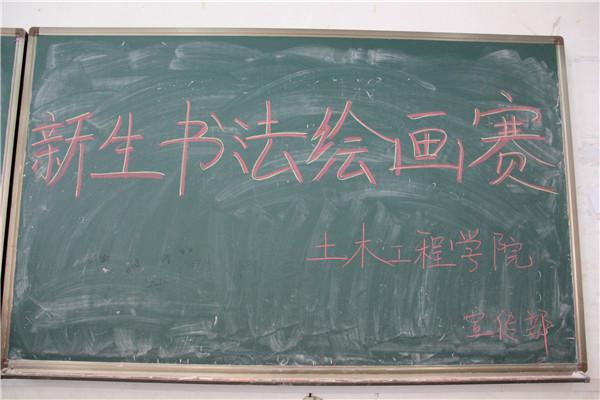 新生书法绘画赛
土木工程学院
宣传部